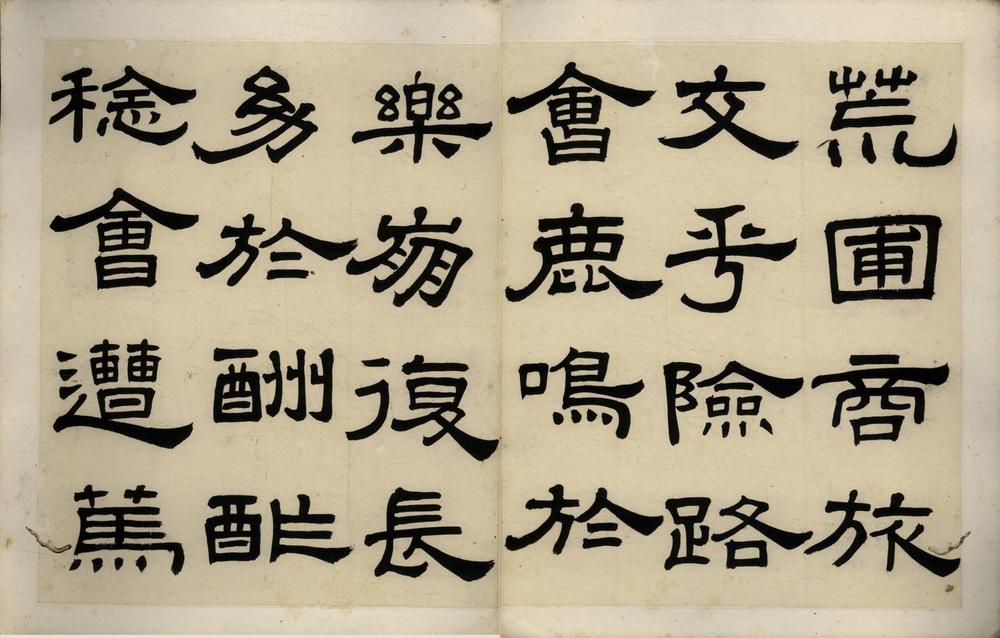 荒圃商旅
交乎險路
會鹿鳴於
樂崩復長
幼於酬酢
稔會遭篤